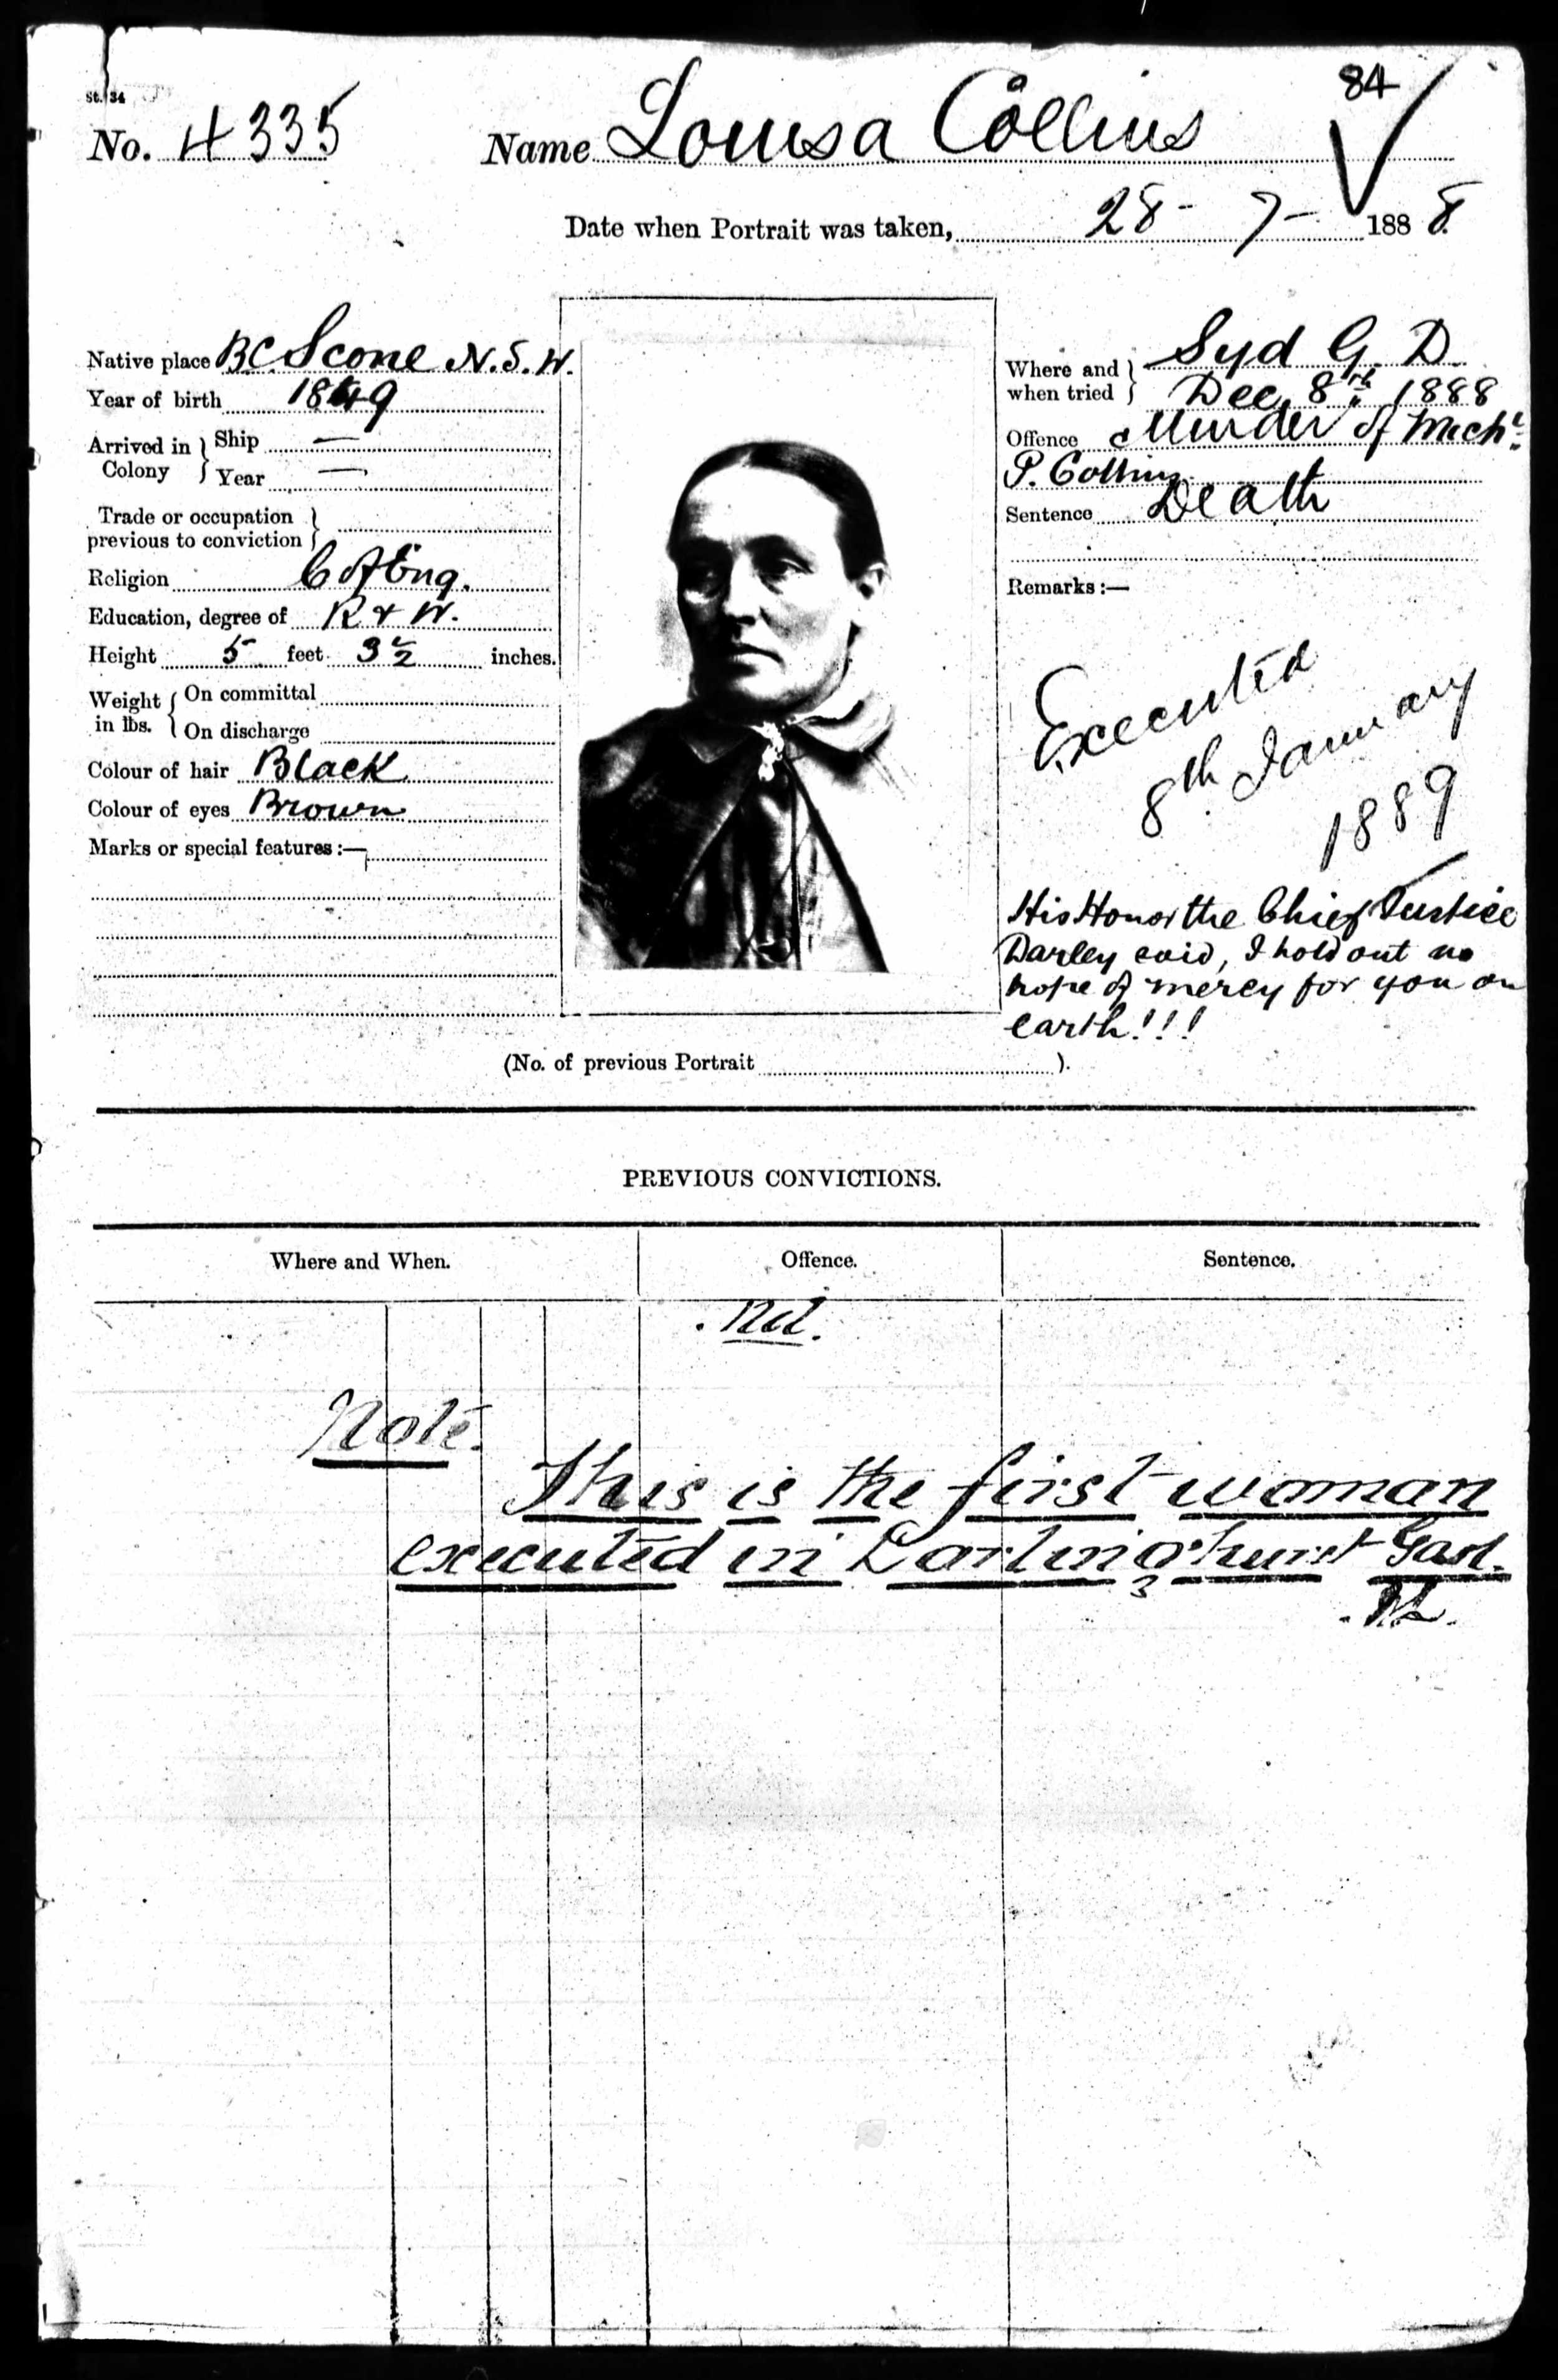 St. 34
84
No. 4335 Name Louisa Collins
Date when Portrait was taken, 28-7-1888.
Native place BC. Scone N.S.W.
Year of birth 1849
Arrived in Colony } Ship —
Year —
Trade or occupation previous to conviction }
Religion C of Eng.
Education, degree of R & W.
Height 5 feet 3 1/2 inches.
Weight in lbs. { On committal
On discharge
Colour of hair Black
Colour of eyes Brown
Marks or special features:—
Where and when tried } Syd G. D.
Dec. 8th 1888
Offence Murder of Michl.
P. Collins
Sentence Death
Remarks:—
Executed
8th January
1889
His Honor the Chief Justice
Darley said, I hold out no
hope of mercy for you on
earth!!!
(No. of previous Portrait ).
PREVIOUS CONVICTIONS.
Where and When. Offence. Sentence.
Nil.
Note.
This is the first woman
executed in Darlinghurst Gaol.